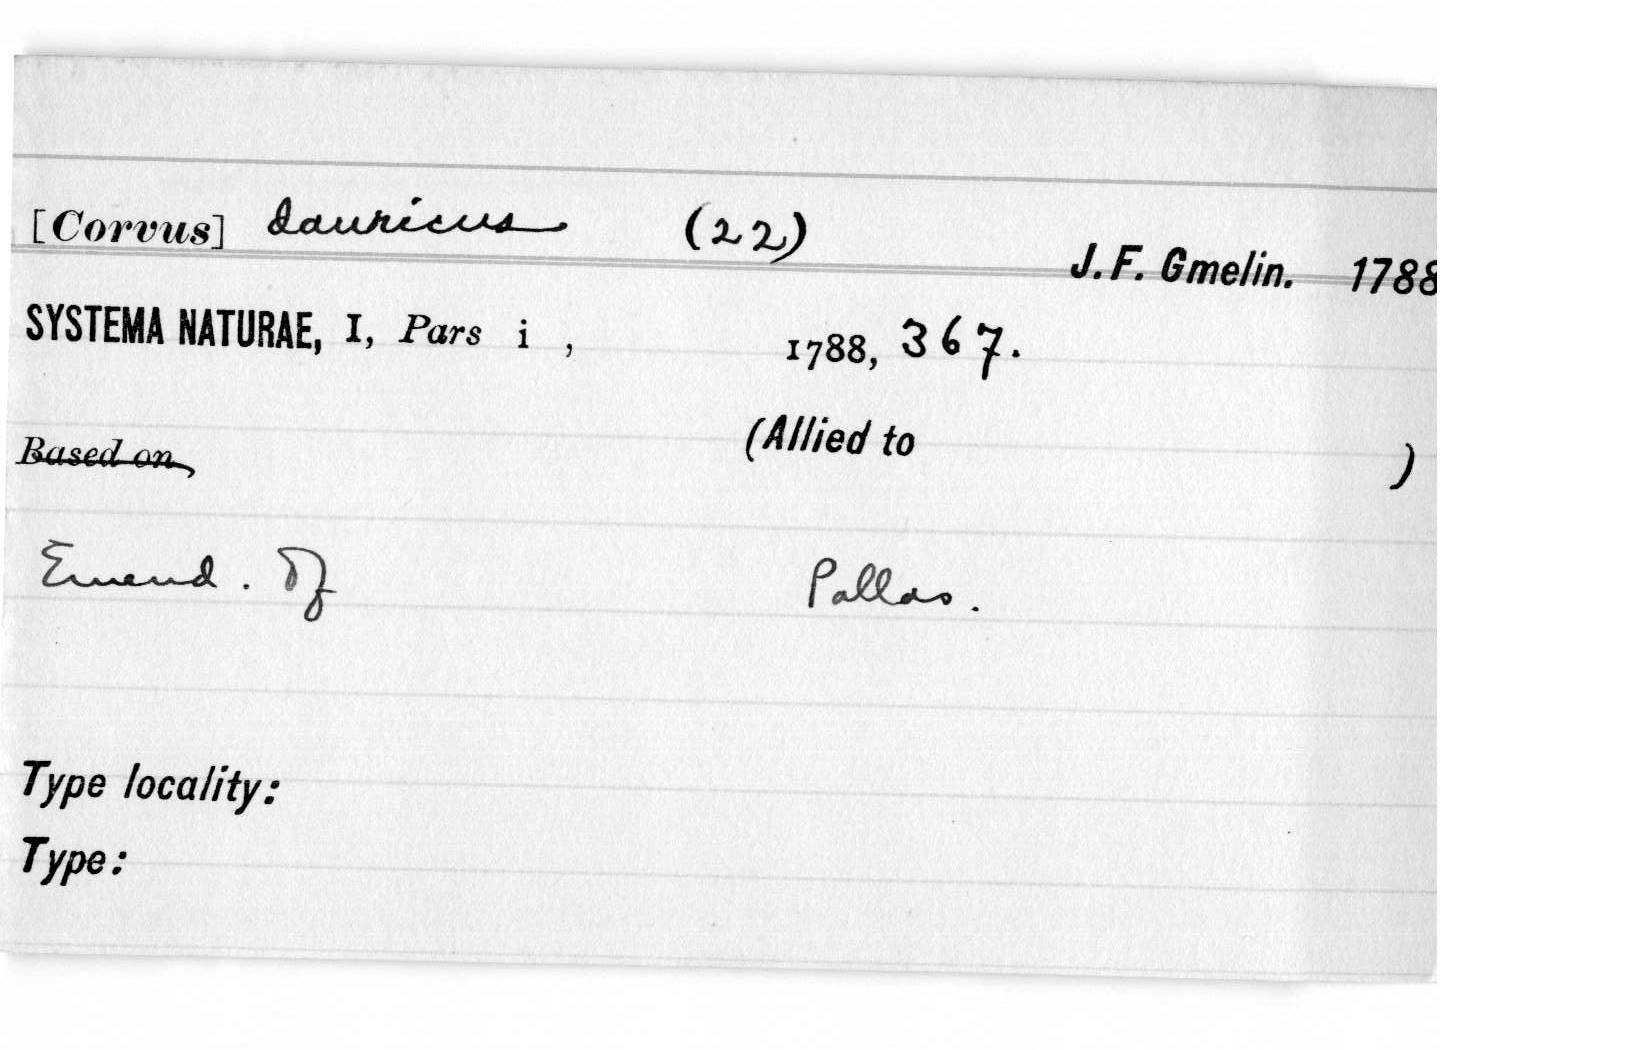 [Corvus] dauricus (22) J. F. Gmelin. 1788
SYSTEMA NATURAE, I, Pars i , 1788, 367.
Based on (Allied to )
Emend. Of Pallas.
Type locality:
Type: